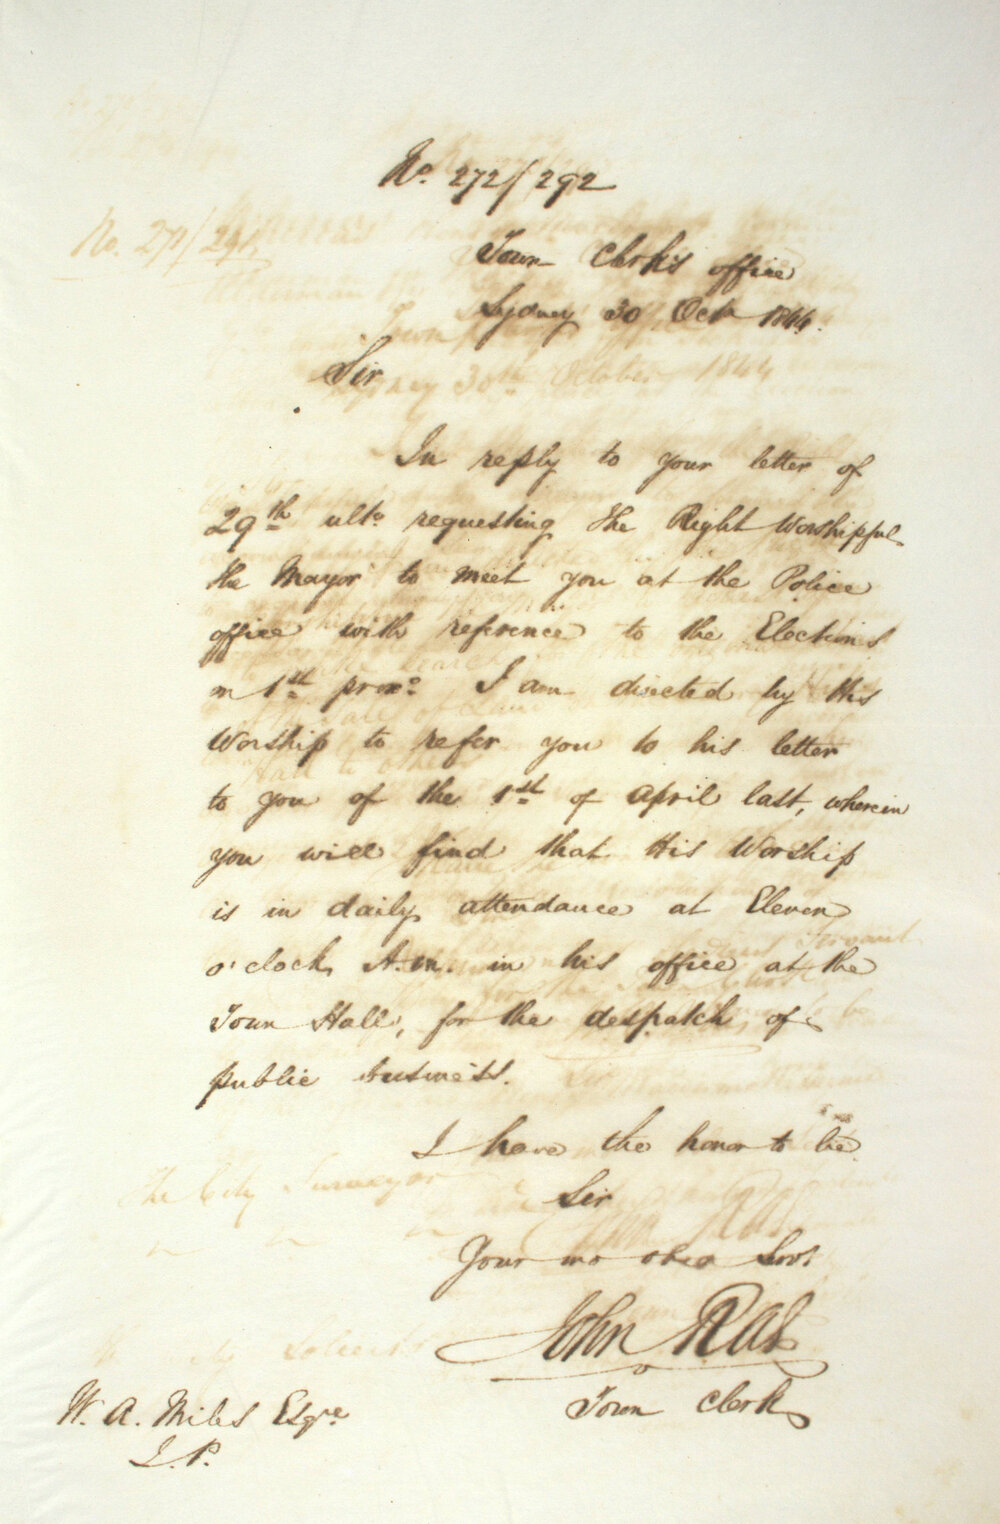 No. 272/292
Town Clerk's office
Sydney 30 Octr 1844.
Sir
In reply to your letter of
29th ulto requesting the Right Worshipful
the Mayor to meet you at the Police
office with reference to the Elections
on 1st proxo I am directed by His
Worship to refer you to his letter
to you of the 1st of April last, wherein
you will find that His Worship
is in daily attendance at Eleven
o'clock A.m. in his office at the
Town Hall, for the despatch of
public business.
I have the honor to be
Sir
Your mo obed Servt
John Rae
Town Clerk
W. A. Miles Esqre
J.P.